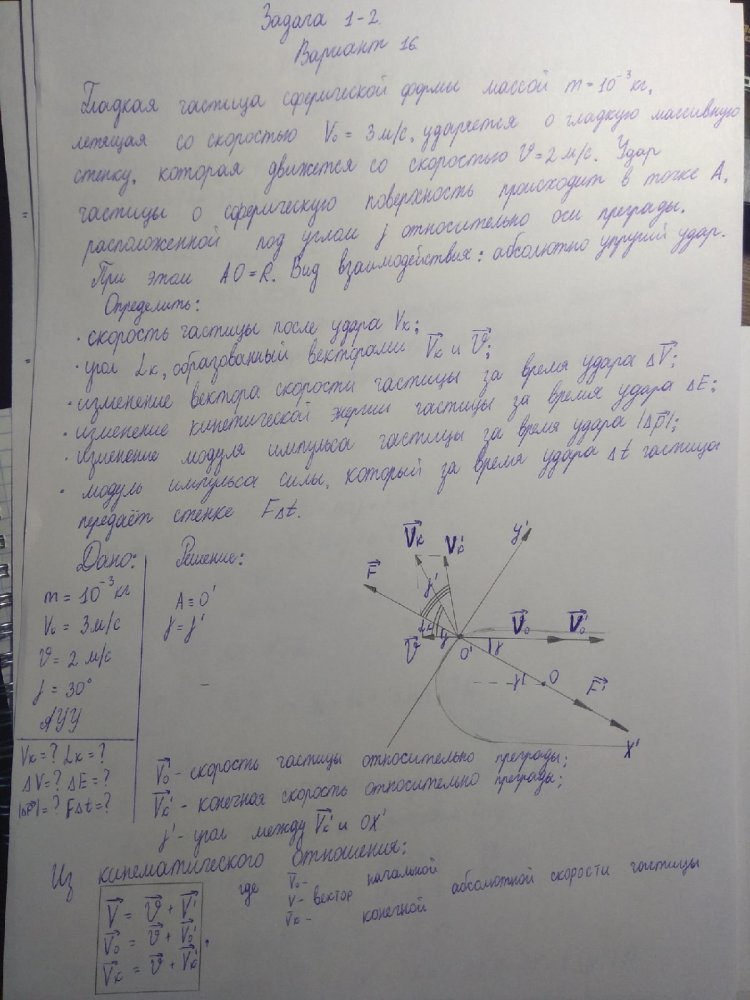 Задача 1-2.
Вариант 16.
Гладкая частица сферической формы массой m = 10⁻³ кг,
летящая со скоростью V₀ = 3 м/с, ударяется о гладкую массивную
стенку, которая движется со скоростью ϑ = 2 м/с. Удар
частицы о сферическую поверхность происходит в точке A,
расположенной под углом γ относительно оси преграды.
При этом AO = R. Вид взаимодействия: абсолютно упругий удар.
Определить:
· скорость частицы после удара Vк;
· угол αк, образованный векторами V⃗к и ϑ⃗;
· изменение вектора скорости частицы за время удара ΔV⃗;
· изменение кинетической энергии частицы за время удара ΔE;
· изменение модуля импульса частицы за время удара |Δp⃗|;
· модуль импульса силы, который за время удара Δt частица
передаёт стенке FΔt.
Дано:
m = 10⁻³ кг
V₀ = 3 м/с
ϑ = 2 м/с
γ = 30°
АУУ
Vк = ? αк = ?
ΔV = ? ΔE = ?
|Δp⃗| = ? FΔt = ?
Решение:
A ≡ O'
γ = γ'
V⃗к
V⃗к'
y'
F⃗
γ'
αк
γ
ϑ⃗
O'
V⃗₀
V⃗₀'
γ
γ
O
F⃗'
X'
V⃗₀' - скорость частицы относительно преграды;
V⃗к' - конечная скорость относительно преграды;
γ' - угол между V⃗к' и OX'
Из кинематического отношения:
V⃗ = ϑ⃗ + V⃗'
V⃗₀ = ϑ⃗ + V⃗₀'
V⃗к = ϑ⃗ + V⃗к'
,
где
V⃗₀ - начальной
V - вектор абсолютной скорости частицы
V⃗к - конечной